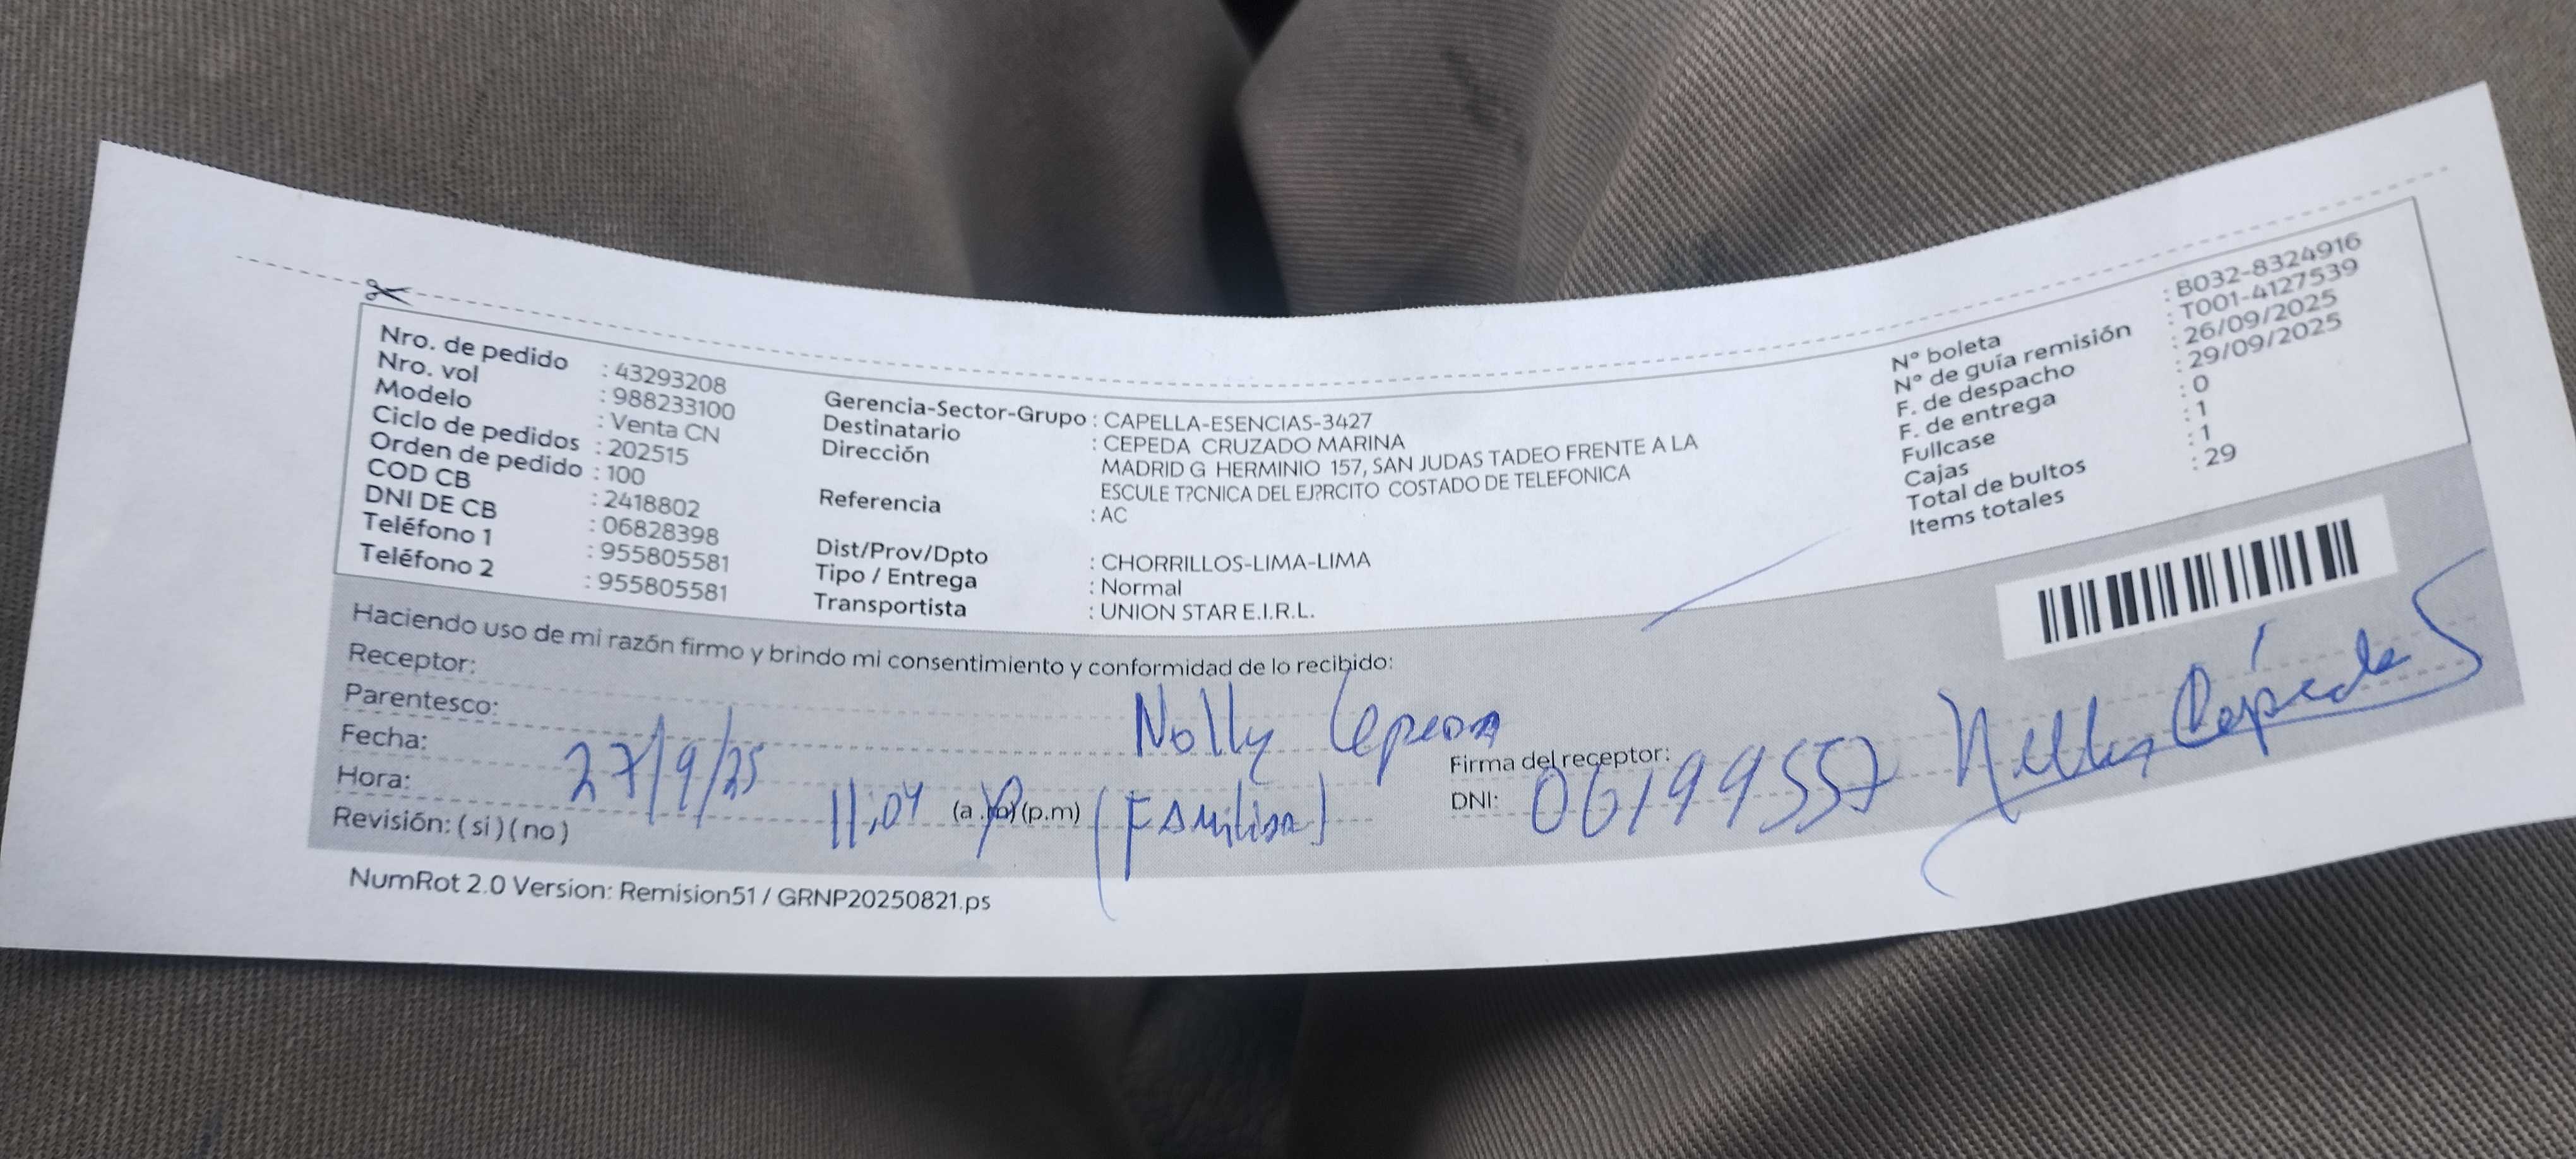 Nro. de pedido : 43293208
Nro. vol : 988233100
Modelo : Venta CN
Ciclo de pedidos : 202515
Orden de pedido : 100
COD CB : 2418802
DNI DE CB : 06828398
Teléfono 1 : 955805581
Teléfono 2 : 955805581
Gerencia-Sector-Grupo : CAPELLA-ESENCIAS-3427
Destinatario : CEPEDA CRUZADO MARINA
Dirección MADRID G HERMINIO 157, SAN JUDAS TADEO FRENTE A LA
ESCULE T?CNICA DEL EJ?RCITO COSTADO DE TELEFONICA
Referencia : AC
Dist/Prov/Dpto : CHORRILLOS-LIMA-LIMA
Tipo / Entrega : Normal
Transportista : UNION STAR E.I.R.L.
N° boleta : B032-8324916
N° de guía remisión : T001-4127539
F. de despacho : 26/09/2025
F. de entrega : 29/09/2025
Fullcase : 0
Cajas : 1
Total de bultos : 1
Items totales : 29
Haciendo uso de mi razón firmo y brindo mi consentimiento y conformidad de lo recibido:
Receptor: Nelly Cepeda
Parentesco:
Fecha: 27/9/25
Hora: 11:04 (a.m)(p.m) (Familiar)
Revisión: (si)(no)
Firma del receptor: Nelly Cepeda
DNI: 06199557
NumRot 2.0 Version: Remision51 / GRNP20250821.ps